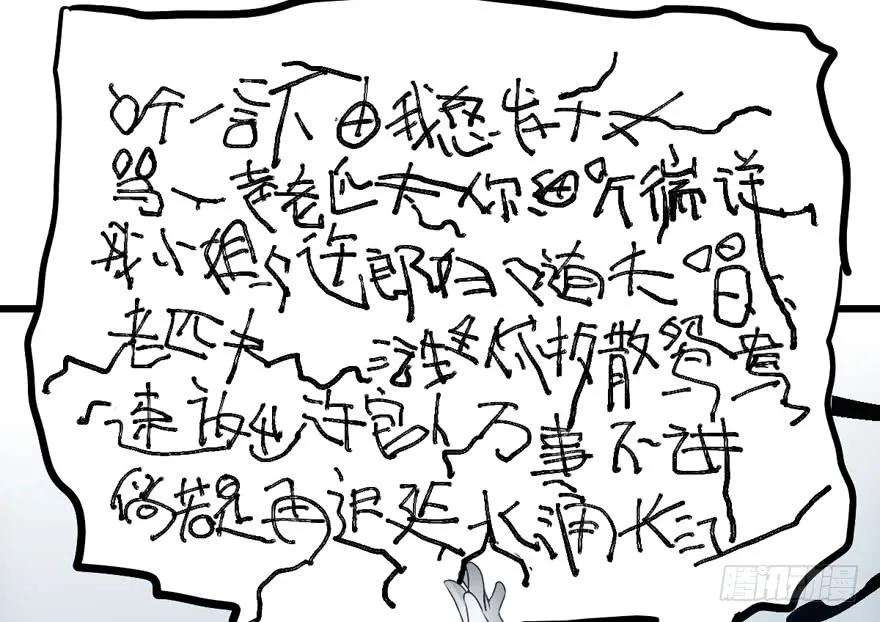 听一言不由我怒发千丈
骂一声老匹夫你细听端详
我小姐与许郎归入道夫唱
老匹夫 谁要你拆散鸳鸯
速放出许官人万事不讲
倘若是再迟延水涌长江
腾讯动漫